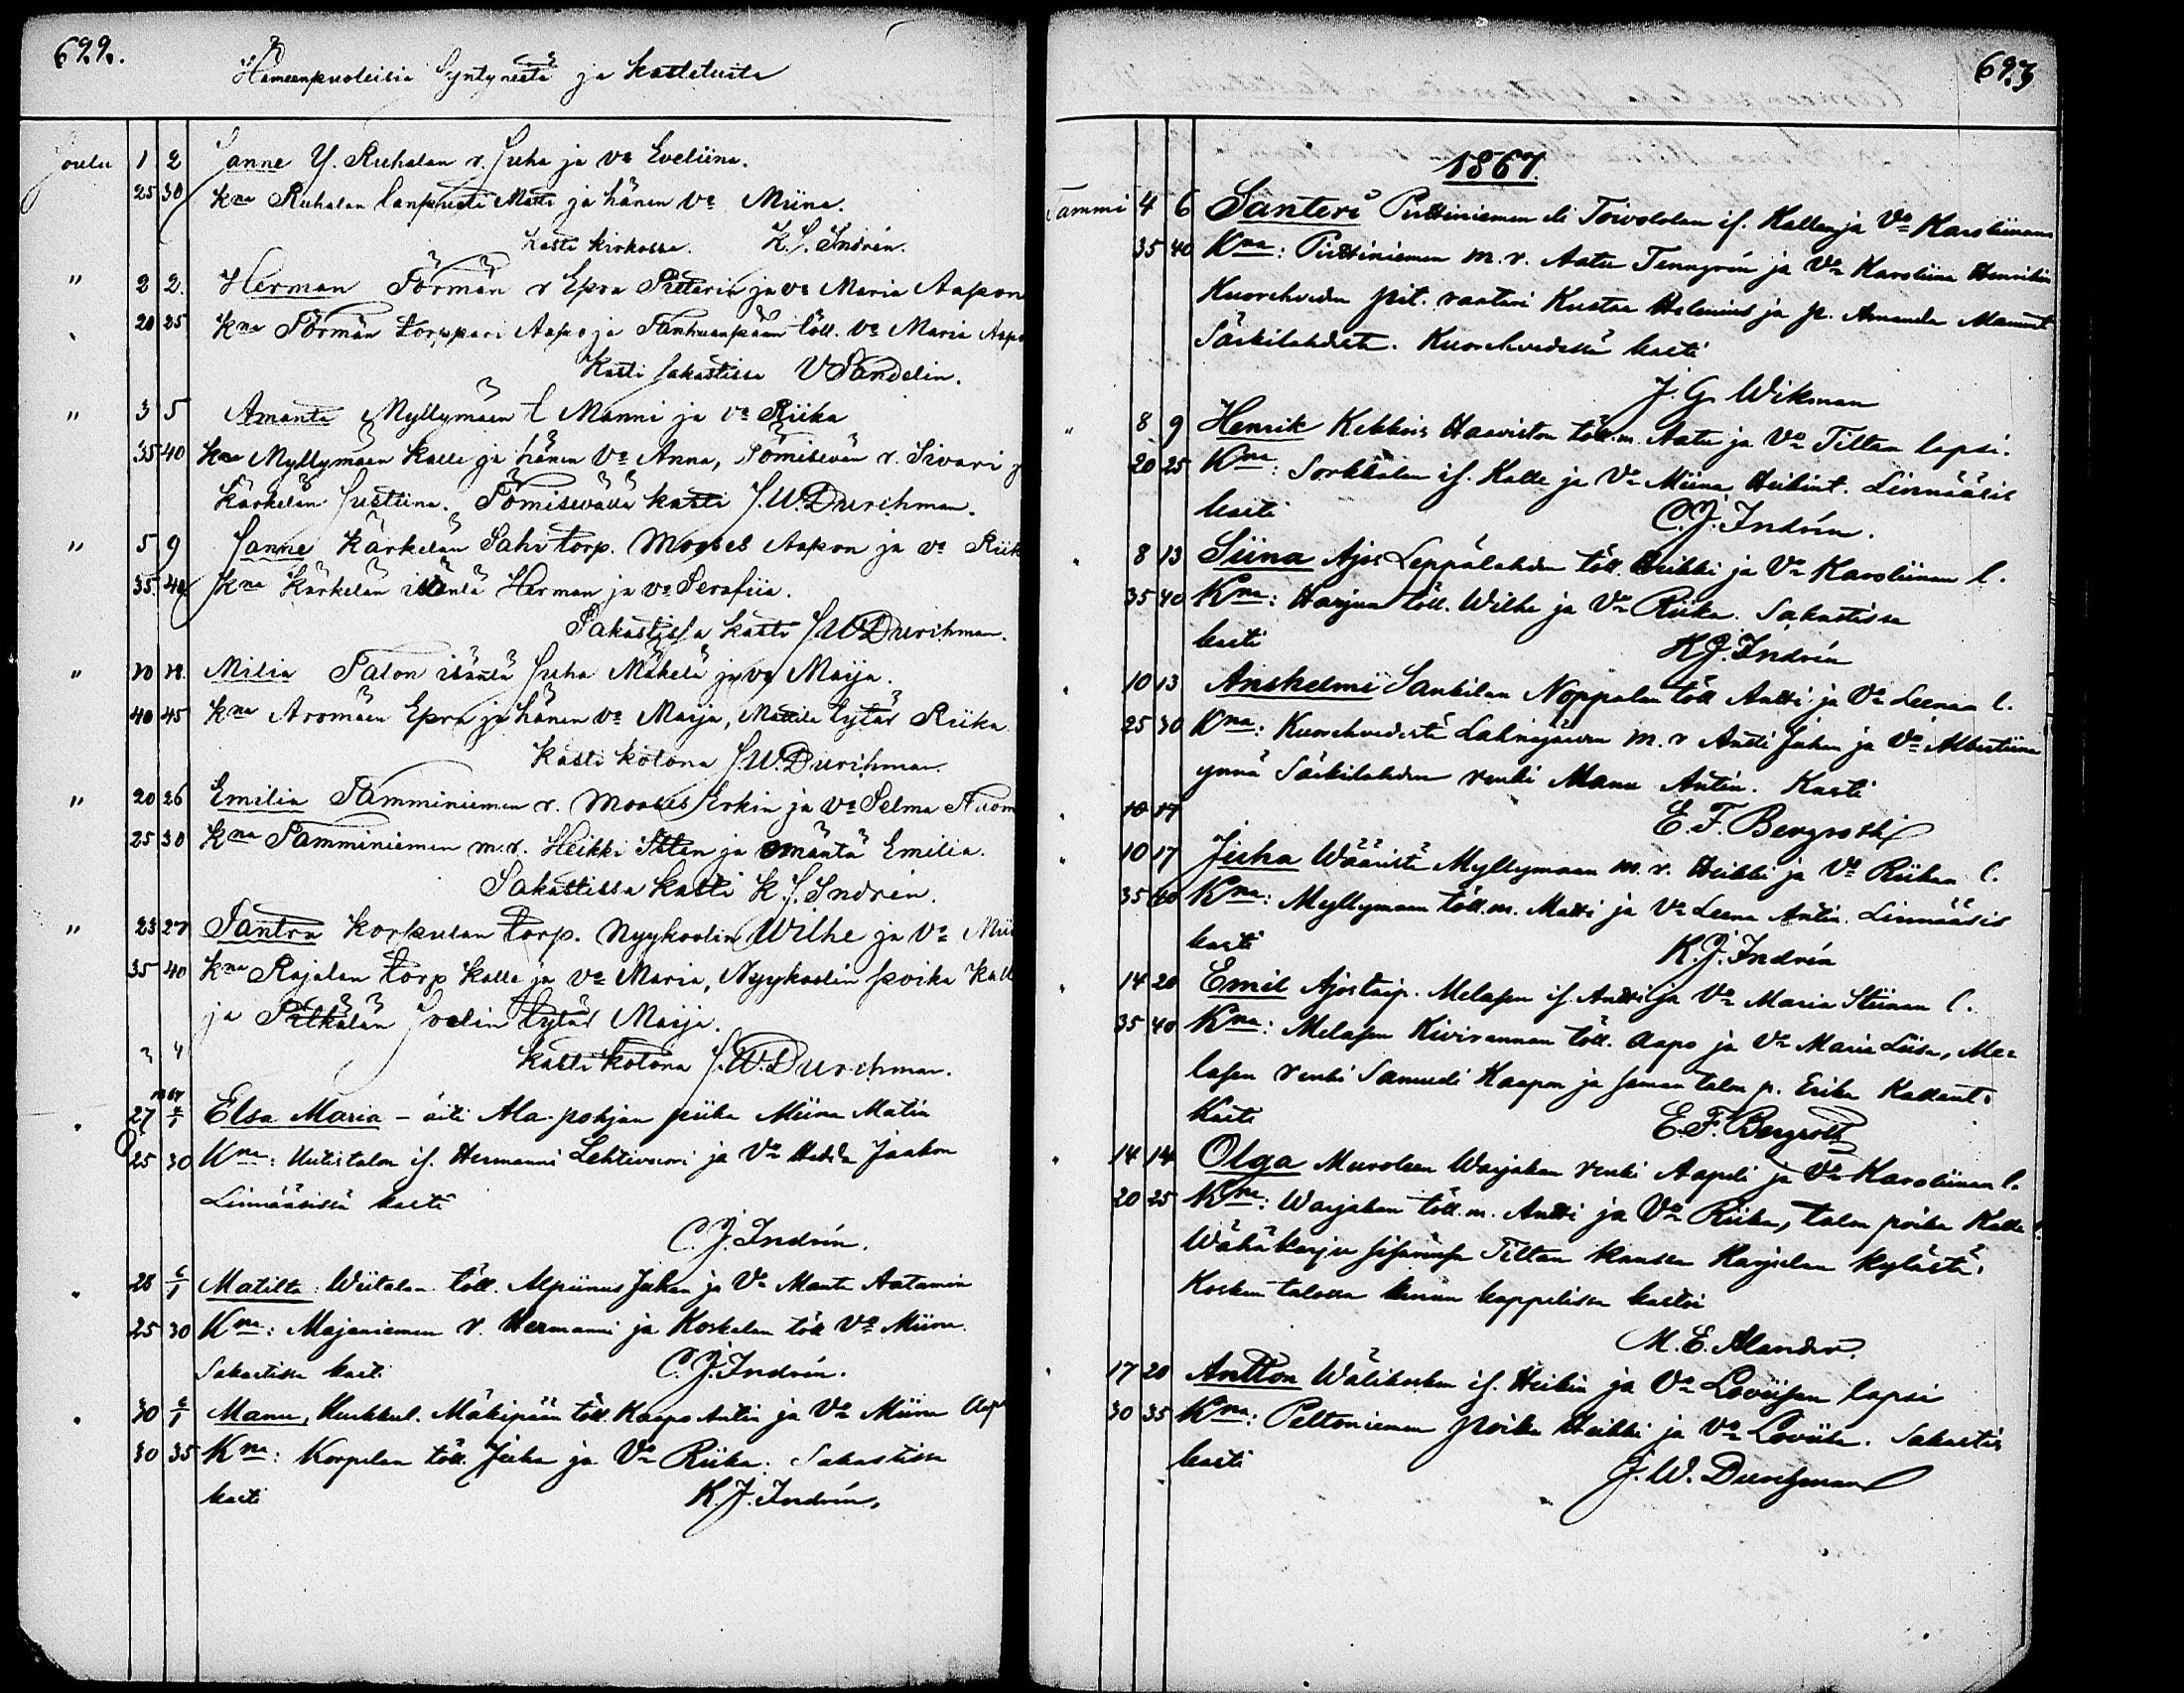 699.
Hämeenpuoleisia Syntyneitä ja kastetuita
Joulu 1 2 Janne Y. Ruhalan r. Juha ja vo Eveliina.
25 30 kna Ruhalan lanpuoti Matti ja hänen vo Miina.
kasti kirkossa. K. J. Indrén.
" 2 2. Herman Törmän r Epra ja vo Maria Aapon
20 25 kna Törmän torppari Aapo ja töll. vo Maria
Kasti sakastissa V Sandelin.
" 3 5 Amanta Myllymäen l Manni ja vo Riika
35 40 kna Myllymäen Kalle ja hänen vo Anna, r. Sivari
Kärkelän Justiina. kasti J. W. Durchman.
" 5 9 Janne Kärkelän Sahi torp. Mooses Aapon ja vo
35 40 kna Kärkelän isäntä Herman ja vo Serafiia.
Sakastissa kasti J W Durchman.
" 10 Milia Talon isäntä Juha Mäkelä ja vo Maija.
40 45 kna Aromäen Epra ja hänen vo Maija, Mattila tytär Riika
kasti kotona J. W. Durchman.
" 20 26 Emilia Tamminiemen r. Mooses Erkin ja vo Selma
25 30 kna Tamminiemen m. r. Heikki ja emäntä Emilia.
Sakastissa kasti K. J. Indrén.
" 23 27 Santra Korkulan torp. Nyykoolin Wilhe ja vo
35 40 kna Rajalan torp Kalle ja vo Maria, Nyykoolin poika
ja Joelin tytär Maija.
kasti kotona J. W. Durchman.
1867
27 6/1 Elsa Maria – äiti Ala-pohjan piika Miina Matin
25 30 Kna: Uutistalon is. Hermanni Lehtivuori ja Vo Hedda Jaakon
Linnääsissä kasti
C. J. Indrén.
28 6/1 Matilta: Wiitalan töll. Alpiinus Juhan ja Vo Manta Aatamin
25 30 Kna: Majaniemen r. Hermanni ja Koskelan töll Vo Miina.
Sakastissa kasti. C. J. Indrén.
30 6/1 Manu, Kurkkul. Mäkipään töll. Kaapo Antin ja Vo Miina
30 35 Kna: Korpelan töll. Juha ja Vo Riika. Sakastissa
kasti K. J. Indrén.
693
1867.
Tammi 4 6 Santeri Pirttiniemen eli Toivolan is. Kallen ja Vo Karoliinan
35 40 Kna: Pirttiniemen m. r. Aatu Tenngrén ja Vo Karoliina Henrikin
Kuorehveden pit. raatari Kustaa Helenius ja p. Amanda Manuent
Särkilahdesta. Kuorehvedessä kasti
J. G. Wikman
" 8 9 Henrik Kekkois Haaviston töll. m. Aatu ja Vo Tiltan lapsi.
20 25 Kna: Sorkkalan is. Kalle ja Vo Miina Heikint. Linnääsis
kasti C. J. Indrén.
8 13 Siina Ajos Leppälahden töll. Heikki ja Vo Karoliinan l.
35 40 Kna: Harjun töll. Wilhe ja Vo Riika. Sakastissa
kasti K J. Indrén
10 13 Anshelmi Sankilan Noppalan töll Antti ja Vo Leenan l.
25 30 Kna: Kuorehvedestä Lahnajärven m. r Antti Juhan ja Vo Albertiina
ynnä Särkilahden renki Manu Antin. Kasti
10 17 E. F. Bergroth
10 17 Juha Wääristä Myllymaan m. r. Heikki ja Vo Riikan l.
35 40 Kna: Myllymaan töll. m. Matti ja Vo Leena Antin. Linnääsis
kasti K. J. Indrén
14 20 Emil Ajostaip. Melasen is. Antti ja Vo Maria Stiinan l.
35 40 Kna: Melasen Kivirannan töll. Aapo ja Vo Maria Loisa, Me-
lasen renki Samueli Kaapon ja saman talon p. Erika Kallent.
Kasti E. F. Bergroth
14 14 Olga Muroleen Warjakan renki Aapeli ja Vo Karoliinan l.
20 25 Kna: Warjakan töll. m. Antti ja Vo Riika, talon poika Kalle
Wähäkarju sisärensä Tiltan kanssa Karjulan kylästä.
Kosken talossa kappelissa kastoi
M. E. Alander.
17 20 Antton Wälikosken is. Heikin ja Vo Loviisan lapsi
30 35 Kna: Peltoniemen poika Heikki ja Vo Loviisa. Sakastis
kasti J. W. Durchman